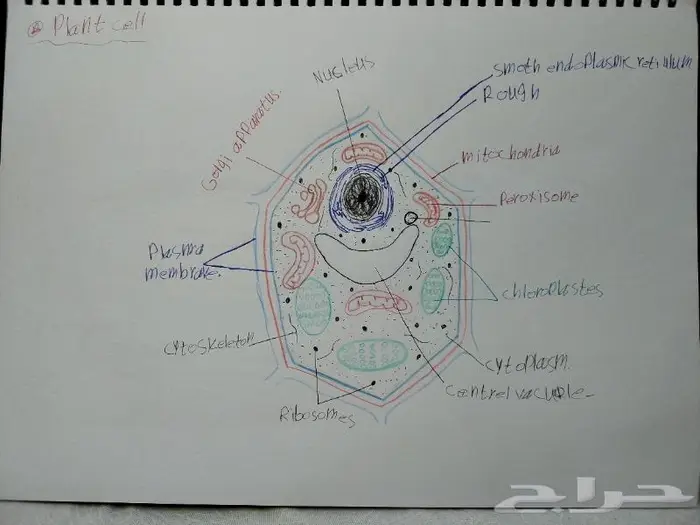 ② Plant cell
Nucleus
smoth endoplasmic reticulum
Rough
Golgi apparatus.
mitochondria
Peroxisome
Plasma
membrane.
chloroplastes
cytoskeleton
cytoplasm.
Central vacuole
Ribosomes
حراج